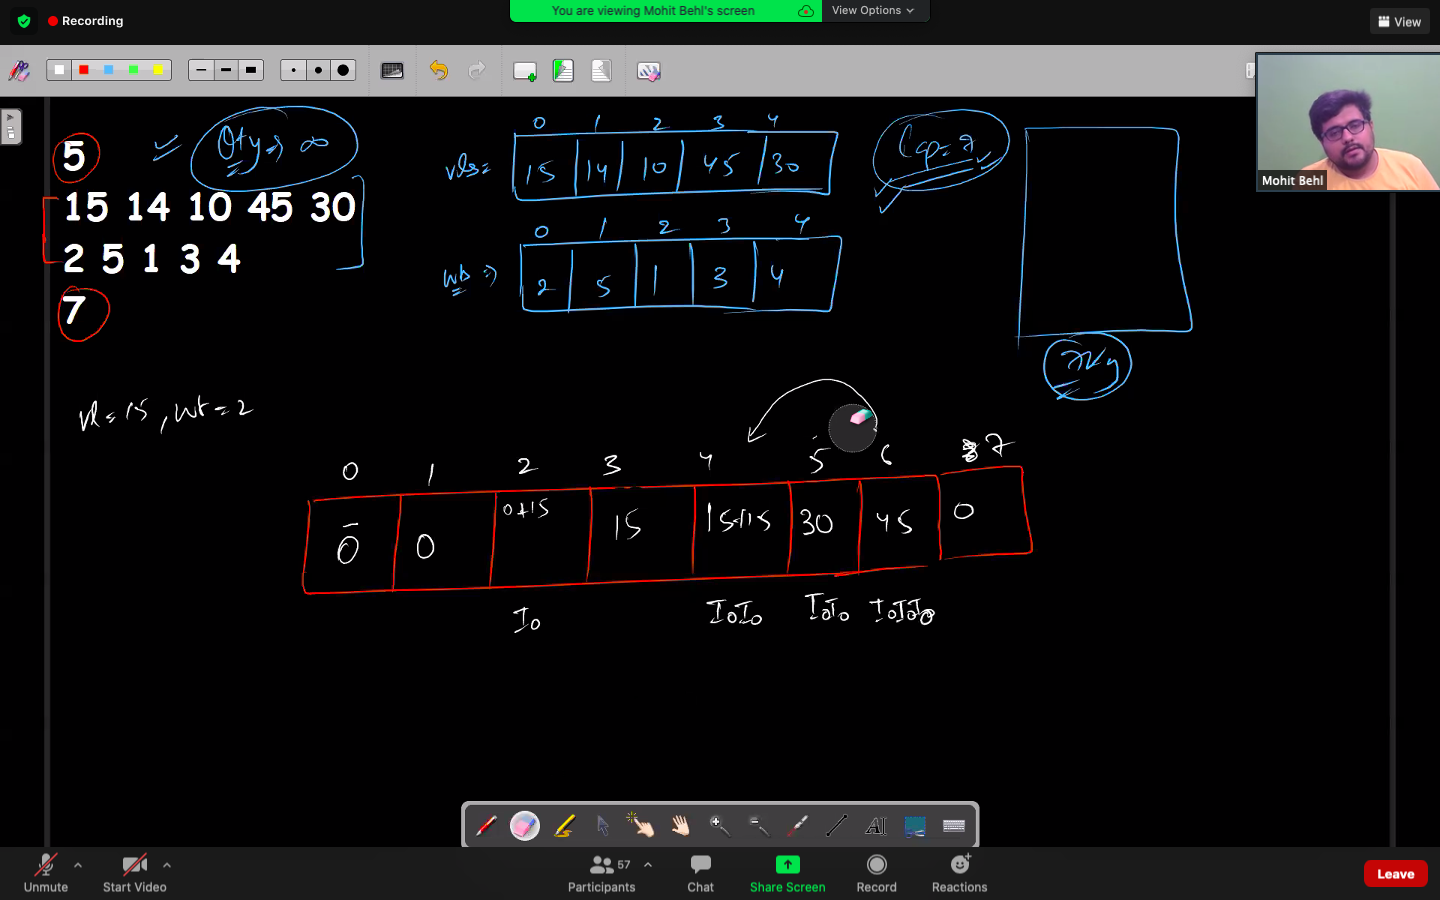 Recording
You are viewing Mohit Behl's screen
View Options
View
Mohit Behl
5
Qty => ∞
15 14 10 45 30
2 5 1 3 4
7
0 1 2 3 4
vls =
15 14 10 45 30
Cap = 7
0 1 2 3 4
wts =>
2 5 1 3 4
7kg
vl = 15, wt = 2
0 1 2 3 4 5 6 7
0 0 0+15 15 15+15 30 45 0
I0 I0I0 I0I0 I0I0I0
AI
Unmute
Start Video
57
Participants
Chat
Share Screen
Record
Reactions
Leave